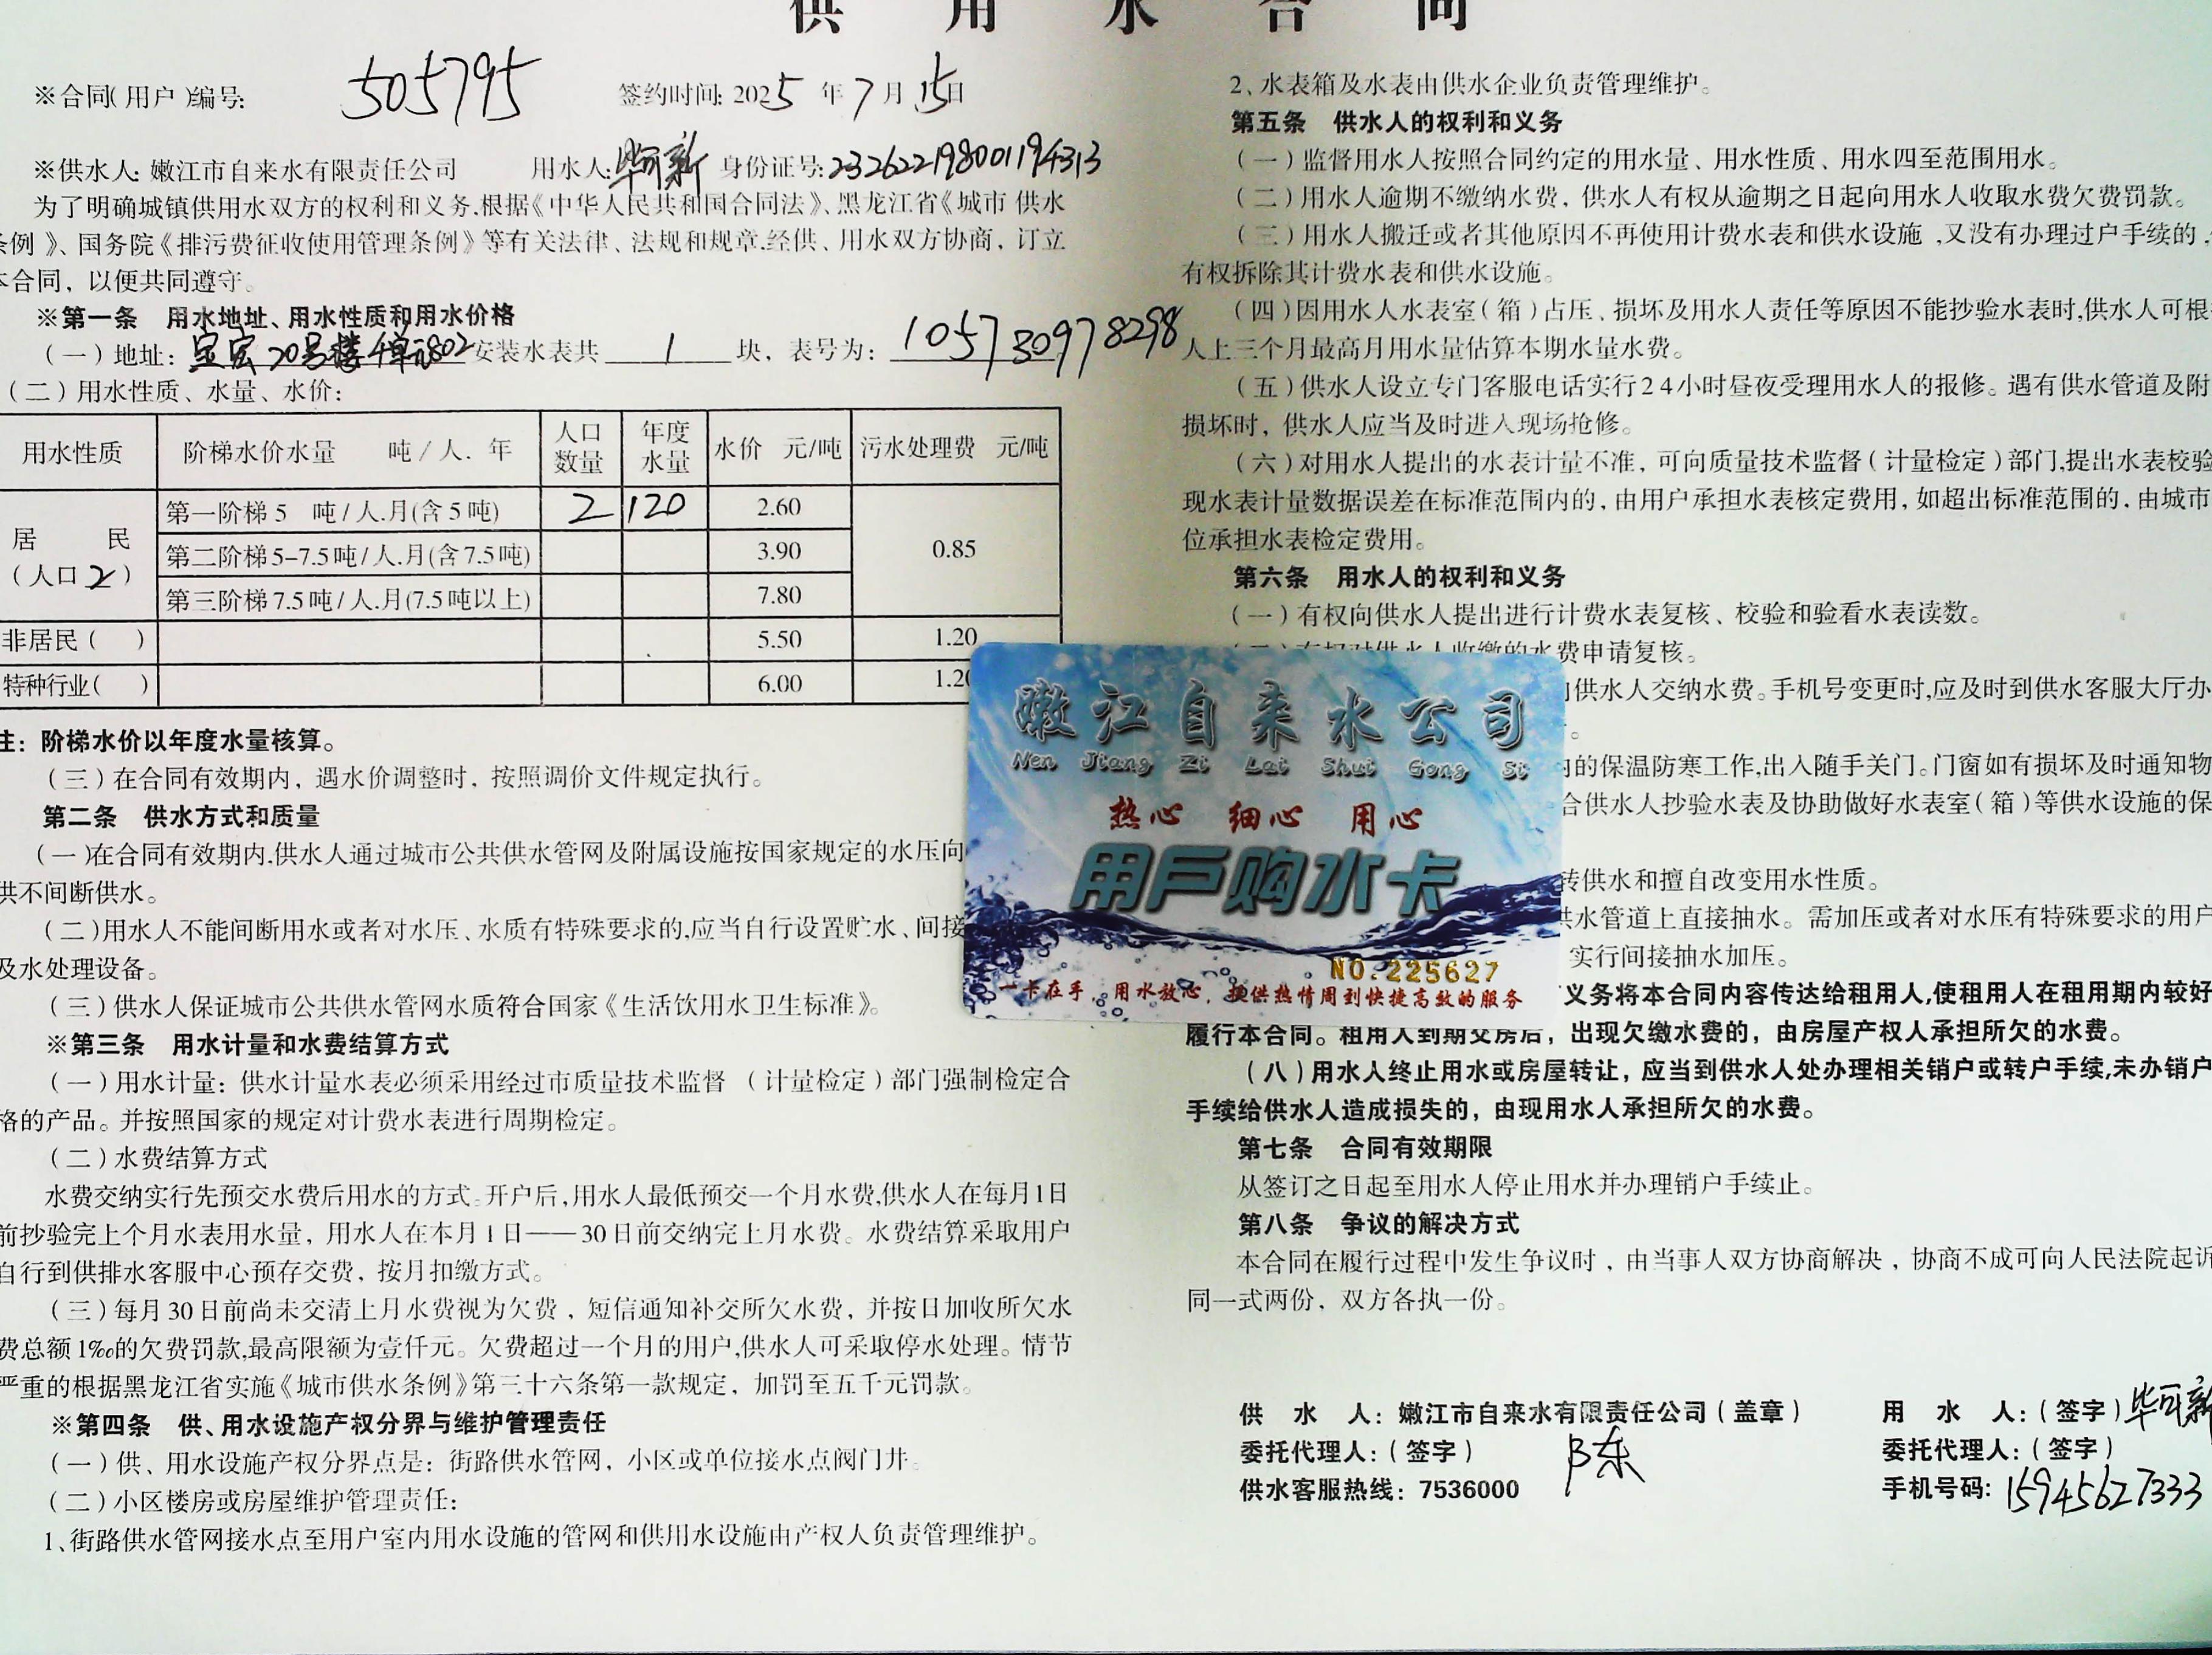 供用水合同
※合同(用户)编号: 505795 签约时间: 2025年7月15日
※供水人: 嫩江市自来水有限责任公司 用水人: 毕可新 身份证号: 232622198001194313
为了明确城镇供用水双方的权利和义务.根据《中华人民共和国合同法》、黑龙江省《城市 供水
条例》、国务院《排污费征收使用管理条例》等有关法律、法规和规章.经供、用水双方协商，订立
本合同，以便共同遵守。
※第一条 用水地址、用水性质和用水价格
(一)地址: 宝宏20号楼4单元802 安装水表共 1 块，表号为: 105730978298
(二)用水性质、水量、水价:
用水性质 阶梯水价水量 吨/人．年 人口数量 年度水量 水价 元/吨 污水处理费 元/吨
居民(人口2) 第一阶梯5 吨/人.月(含5吨) 2 120 2.60 0.85
第二阶梯5-7.5吨/人.月(含7.5吨) 3.90
第三阶梯7.5吨/人.月(7.5吨以上) 7.80
非居民( ) 5.50 1.20
特种行业( ) 6.00 1.20
注：阶梯水价以年度水量核算。
(三)在合同有效期内，遇水价调整时，按照调价文件规定执行。
第二条 供水方式和质量
(一)在合同有效期内.供水人通过城市公共供水管网及附属设施按国家规定的水压向
供不间断供水。
(二)用水人不能间断用水或者对水压、水质有特殊要求的,应当自行设置贮水、间接
及水处理设备。
(三)供水人保证城市公共供水管网水质符合国家《生活饮用水卫生标准》。
※第三条 用水计量和水费结算方式
(一)用水计量：供水计量水表必须采用经过市质量技术监督 (计量检定)部门强制检定合
格的产品。并按照国家的规定对计费水表进行周期检定。
(二)水费结算方式
水费交纳实行先预交水费后用水的方式.开户后,用水人最低预交一个月水费,供水人在每月1日
前抄验完上个月水表用水量，用水人在本月1日——30日前交纳完上月水费。水费结算采取用户
自行到供排水客服中心预存交费，按月扣缴方式。
(三)每月30日前尚未交清上月水费视为欠费，短信通知补交所欠水费，并按日加收所欠水
费总额1‰的欠费罚款,最高限额为壹仟元。欠费超过一个月的用户,供水人可采取停水处理。情节
严重的根据黑龙江省实施《城市供水条例》第三十六条第一款规定，加罚至五千元罚款。
※第四条 供、用水设施产权分界与维护管理责任
(一)供、用水设施产权分界点是：街路供水管网，小区或单位接水点阀门井。
(二)小区楼房或房屋维护管理责任:
1、街路供水管网接水点至用户室内用水设施的管网和供用水设施由产权人负责管理维护。
2、水表箱及水表由供水企业负责管理维护。
第五条 供水人的权利和义务
(一)监督用水人按照合同约定的用水量、用水性质、用水四至范围用水。
(二)用水人逾期不缴纳水费，供水人有权从逾期之日起向用水人收取水费欠费罚款。
(三)用水人搬迁或者其他原因不再使用计费水表和供水设施,又没有办理过户手续的,
有权拆除其计费水表和供水设施。
(四)因用水人水表室(箱)占压、损坏及用水人责任等原因不能抄验水表时,供水人可根
人上三个月最高月用水量估算本期水量水费。
(五)供水人设立专门客服电话实行24小时昼夜受理用水人的报修。遇有供水管道及附
损坏时，供水人应当及时进入现场抢修。
(六)对用水人提出的水表计量不准，可向质量技术监督(计量检定)部门,提出水表校验
现水表计量数据误差在标准范围内的，由用户承担水表核定费用，如超出标准范围的，由城市
位承担水表检定费用。
第六条 用水人的权利和义务
(一)有权向供水人提出进行计费水表复核、校验和验看水表读数。
(二)有权对供水人收缴的水费申请复核。
供水人交纳水费。手机号变更时,应及时到供水客服大厅办
。
的保温防寒工作,出入随手关门。门窗如有损坏及时通知物
合供水人抄验水表及协助做好水表室(箱)等供水设施的保
转供水和擅自改变用水性质。
供水管道上直接抽水。需加压或者对水压有特殊要求的用户
实行间接抽水加压。
义务将本合同内容传达给租用人,使租用人在租用期内较好
履行本合同。租用人到期交房后，出现欠缴水费的，由房屋产权人承担所欠的水费。
(八)用水人终止用水或房屋转让，应当到供水人处办理相关销户或转户手续,未办销户
手续给供水人造成损失的，由现用水人承担所欠的水费。
第七条 合同有效期限
从签订之日起至用水人停止用水并办理销户手续止。
第八条 争议的解决方式
本合同在履行过程中发生争议时，由当事人双方协商解决，协商不成可向人民法院起诉
同一式两份，双方各执一份。
供水人：嫩江市自来水有限责任公司(盖章) 用水人：(签字) 毕可新
委托代理人：(签字) 委托代理人：(签字)
供水客服热线：7536000 手机号码: 15945627333
嫩江自来水公司
Nen Jiang Zi Lai Shui Gong Si
热心 细心 用心
用户购水卡
NO.225627
一卡在手，用水放心，提供热情周到快捷高效的服务